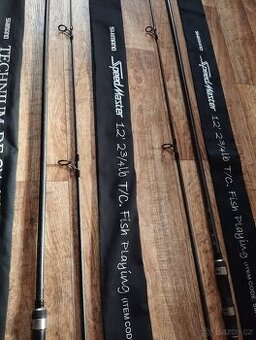 SHIMANO
TECHNIUM
SHIMANO
SpeedMaster
12' 2 3/4 lb T/C. Fish Playing
(ITEM CODE: S
SHIMANO
SpeedMaster
12' 2 3/4 lb T/C. Fish Playing
(ITEM CODE: